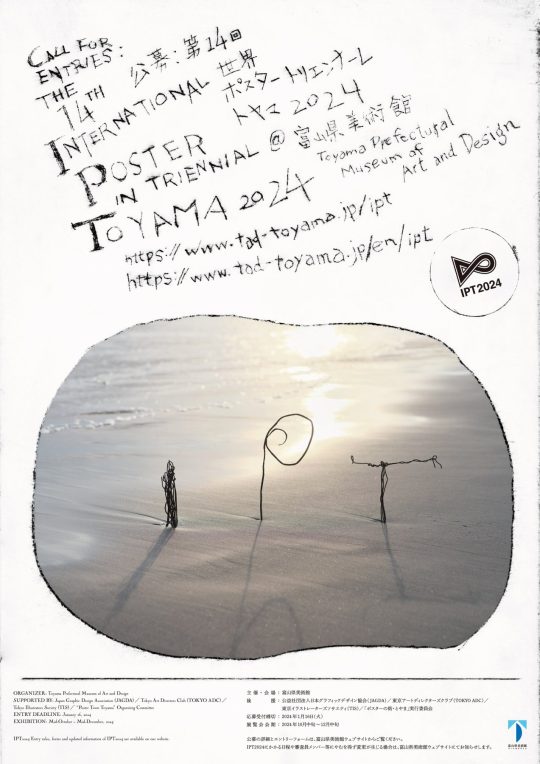 CALL FOR
ENTRIES:
THE
14TH
INTERNATIONAL
POSTER
IN TRIENNIAL
TOYAMA 2024
公募:第14回
世界
ポスタートリエンナーレ
トヤマ2024
@ 富山県美術館
Toyama Prefectural
Museum of
Art and Design
https://www.tad-toyama.jp/ipt
https://www.tad-toyama.jp/en/ipt
IPT2024
I P T
ORGANIZER: Toyama Prefectural Museum of Art and Design
SUPPORTED BY: Japan Graphic Design Association (JAGDA) / Tokyo Art Directors Club (TOKYO ADC) /
Tokyo Illustrators Society (TIS) / "Poster Town Toyama" Organizing Committee
ENTRY DEADLINE: January 16, 2024
EXHIBITION: Mid-October – Mid-December, 2024
IPT2024 Entry rules, forms and updated information of IPT2024 are available on our website.
主催・会場:富山県美術館
後援:公益社団法人日本グラフィックデザイン協会(JAGDA)/東京アートディレクターズクラブ(TOKYO ADC)/
東京イラストレーターズ・ソサエティ(TIS)/「ポスターの街・とやま」実行委員会
応募受付締切:2024年1月16日(火)
展覧会会期:2024年10月中旬〜12月中旬
公募の詳細とエントリーフォームは、富山県美術館ウェブサイトからご覧ください。
IPT2024にかかる日程や審査員メンバー等にやむを得ず変更が生じる場合は、富山県美術館ウェブサイトにてお知らせします。